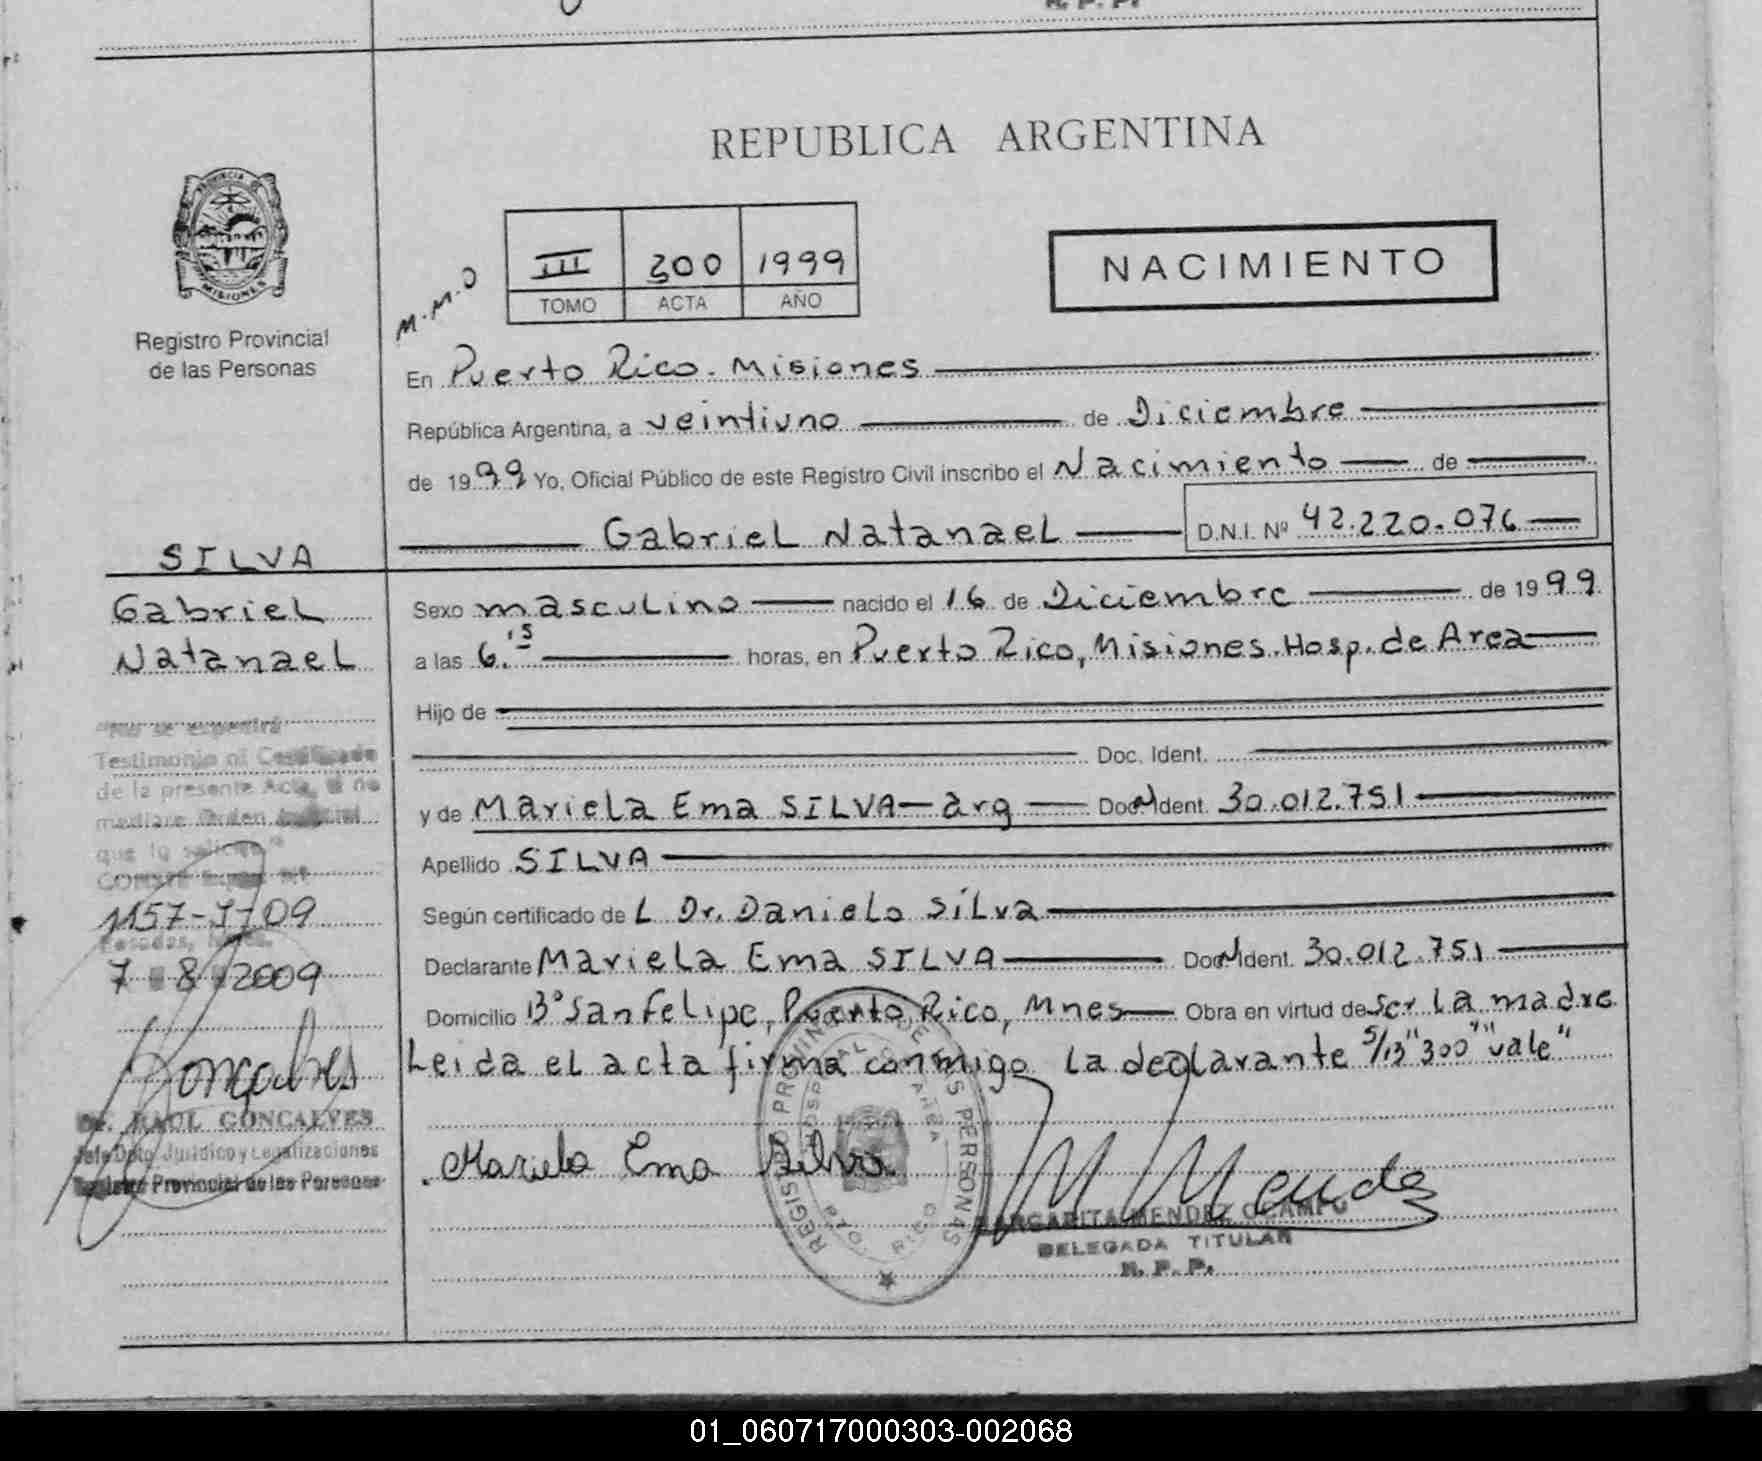 REPUBLICA ARGENTINA
PROVINCIA DE
MISIONES
Registro Provincial
de las Personas
III 300 1999
TOMO ACTA AÑO
M.M.O
NACIMIENTO
En Puerto Rico. Misiones
República Argentina, a veintiuno de Diciembre
de 1999 Yo, Oficial Público de este Registro Civil inscribo el Nacimiento de
Gabriel Natanael D.N.I. Nº 42.220.076
SILVA
Gabriel
Natanael
Sexo masculino nacido el 16 de Diciembre de 1999
a las 6.15 horas, en Puerto Rico, Misiones. Hosp. de Area
Hijo de
Doc. Ident.
y de Mariela Ema SILVA - arg Doc. Ident. 30.012.751
Apellido SILVA
Según certificado de L Dr. Danielo Silva
Declarante Mariela Ema SILVA Doc. Ident. 30.012.751
Domicilio Bº San Felipe, Puerto Rico, Mnes Obra en virtud de ser la madre
Leida el acta firma conmigo la declarante S/B "300" "vale"
"No se expedirá
Testimonio ni Certificado
de la presente Acta, si no
mediare Orden Judicial
que lo solicite"
1157-J-09
Posadas, Mnes.
7 8 2009
Goncalves
Dr. RAUL GONCALVES
Jefe Dpto Jurídico y Legalizaciones
Registro Provincial de las Personas
Mariela Ema Silva
REGISTRO PROVINCIAL DE LAS PERSONAS
HOSPITAL AREA
PTO. RICO
M Mendez
MARGARITA MENDEZ OCAMPO
DELEGADA TITULAR
R. P. P.
01_060717000303-002068